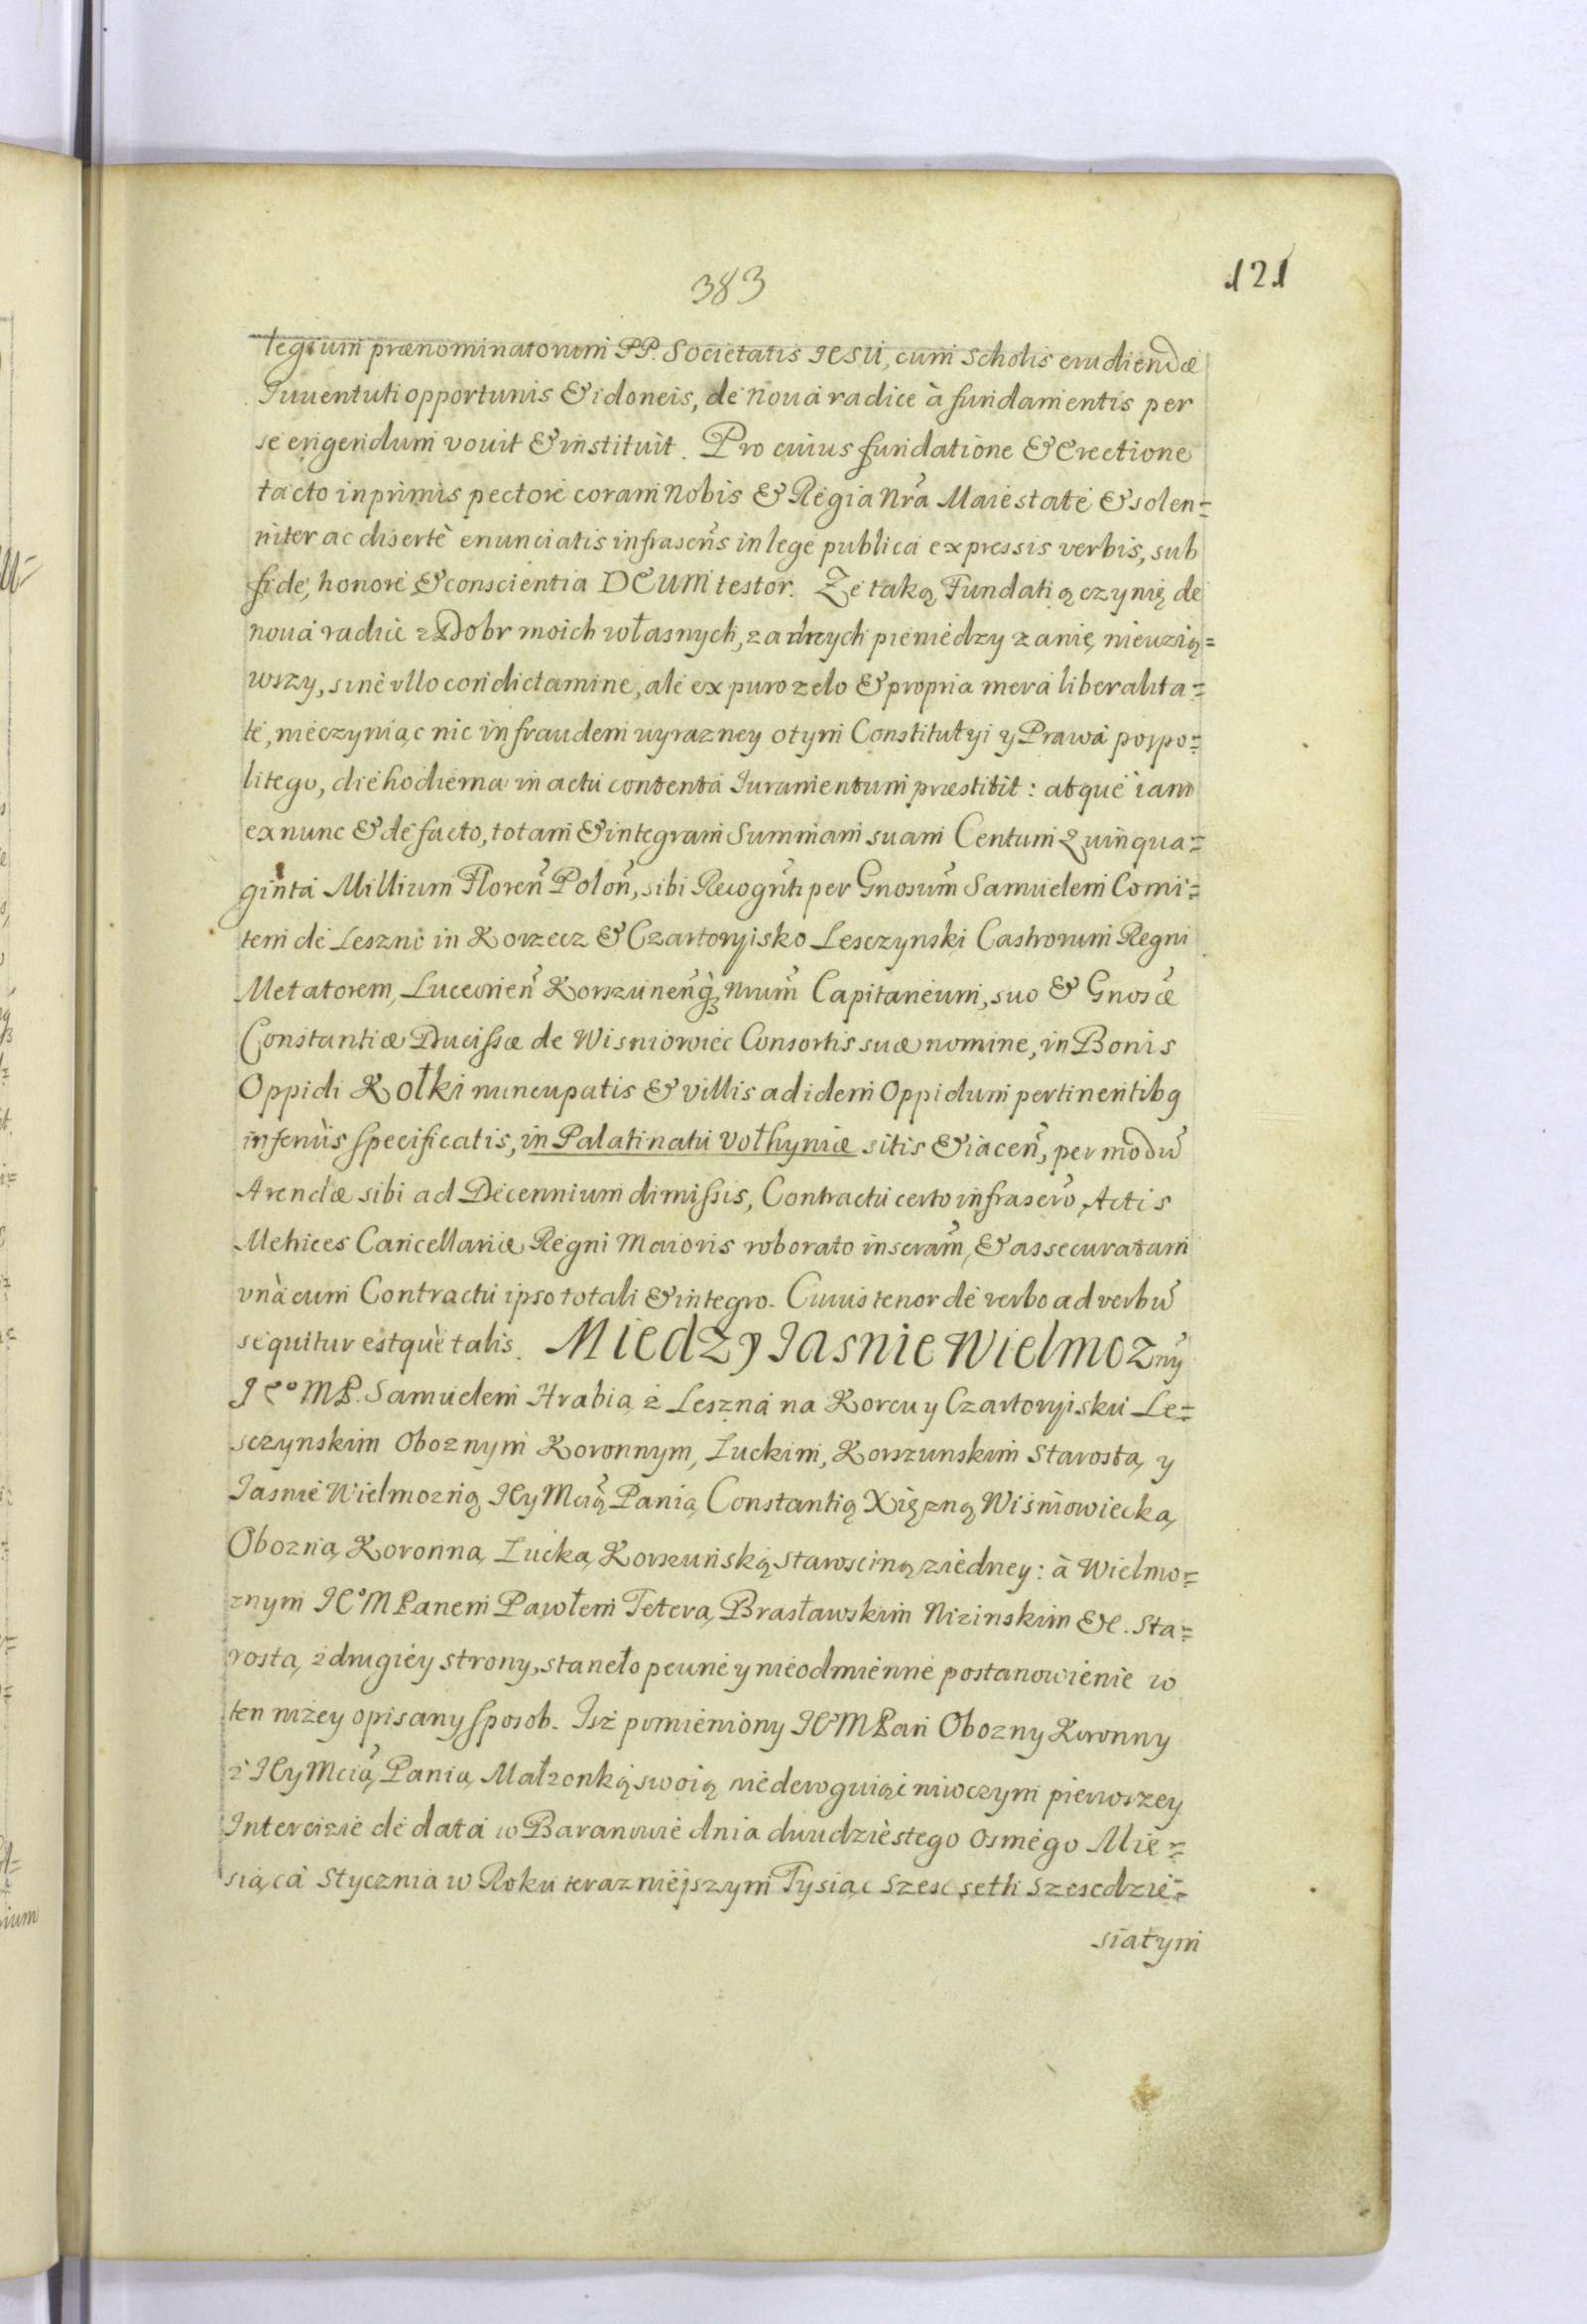 383
121
legium prænominatorum PP. Societatis IESU, cum scholis erudiendæ
Iuuentuti opportunis & idoneis, de noua radice à fundamentis per
se erigendum vouit & instituit. Pro cuius fundatione & Erectione
tacto inprimis pectore coram Nobis & Regia Nrã Maiestate & solen=
niter ac disertè enunciatis infrascrĩs in lege publica expressis verbis, sub
fide, honore & conscientia DEUM testor. Że taką Fundatią czynię de
noua radice z Dobr moich własnych, żadnych pieniedzy zanię nieuzią=
wszy, sine vllo condictamine, ale ex puro zelo & propria mera liberalita=
te, nieczyniąc nic in fraudem wyrazney otym Constitutyi y Prawa pospo=
litego, die hodierna in actu contenta Iuramentum præstitit: atque iam
ex nunc & de facto, totam & integram Summam suam Centum Quinqua=
ginta Millium Floreñ Poloñ, sibi Recogñti per Gnosum̃ Samuelem Comi=
tem de Leszno in Korzecz & Czartoryisko Lesczynski Castrorum Regni
Metatorem, Luceorień Korszuneñq́ȝ Nrum̃ Capitaneum, suo & Gnosæ̃
Constantiæ Ducissæ de Wisniowiec Consortis suæ nomine, in Bonis
Oppidi Kołki nuncupatis & villis ad idem Oppidum pertinentibꝯ
inferiùs specificatis, in Palatinatu Vołhyniæ sitis & iaceñ, per modũ
Arendæ sibi ad Decennium dimissis, Contractu certo infrascrõ, Actis
Metrices Cancellariæ Regni Maioris roborato inscram̃, & assecuratam
vnà cum Contractu ipso totali & integro. Cuius tenor de verbo ad verbũ
sequitur estquè talis. Miedzy Iasnie Wielmozny͂
IE° MP. Samuelem Hrabią z Leszna na Korcu y Czartoryisku Le=
sczynskim Oboznym Koronnym, Luckim, Korszunskim Starostą y
Iasnie Wielmozną IEy Mcią̃ Panią Constantią Xięzną Wiśniowiecką
Obozną Koronną Lucką Korszuńską Starosciną ziedney: à Wielmo=
znym IE° M Panem Pawłem Teterą Brasławskim Nizinskim &c. Sta=
rostą z drugiéy strony, stanęło peune y nieodmienne postanowienie w
ten nizey opisany sposob. Isz pomieniony IE° M Pan Obozny Koronny
z IEy Mcią̃ Panią Małzonką swoią niederoguiąc niwczym pierwszey
Intercizie de data w Baranowie dnia dwudziestego Osmego Mie=
siąca Stycznia w Roku terazniejszym Tysiąc szescseth szescdzie=
siatym